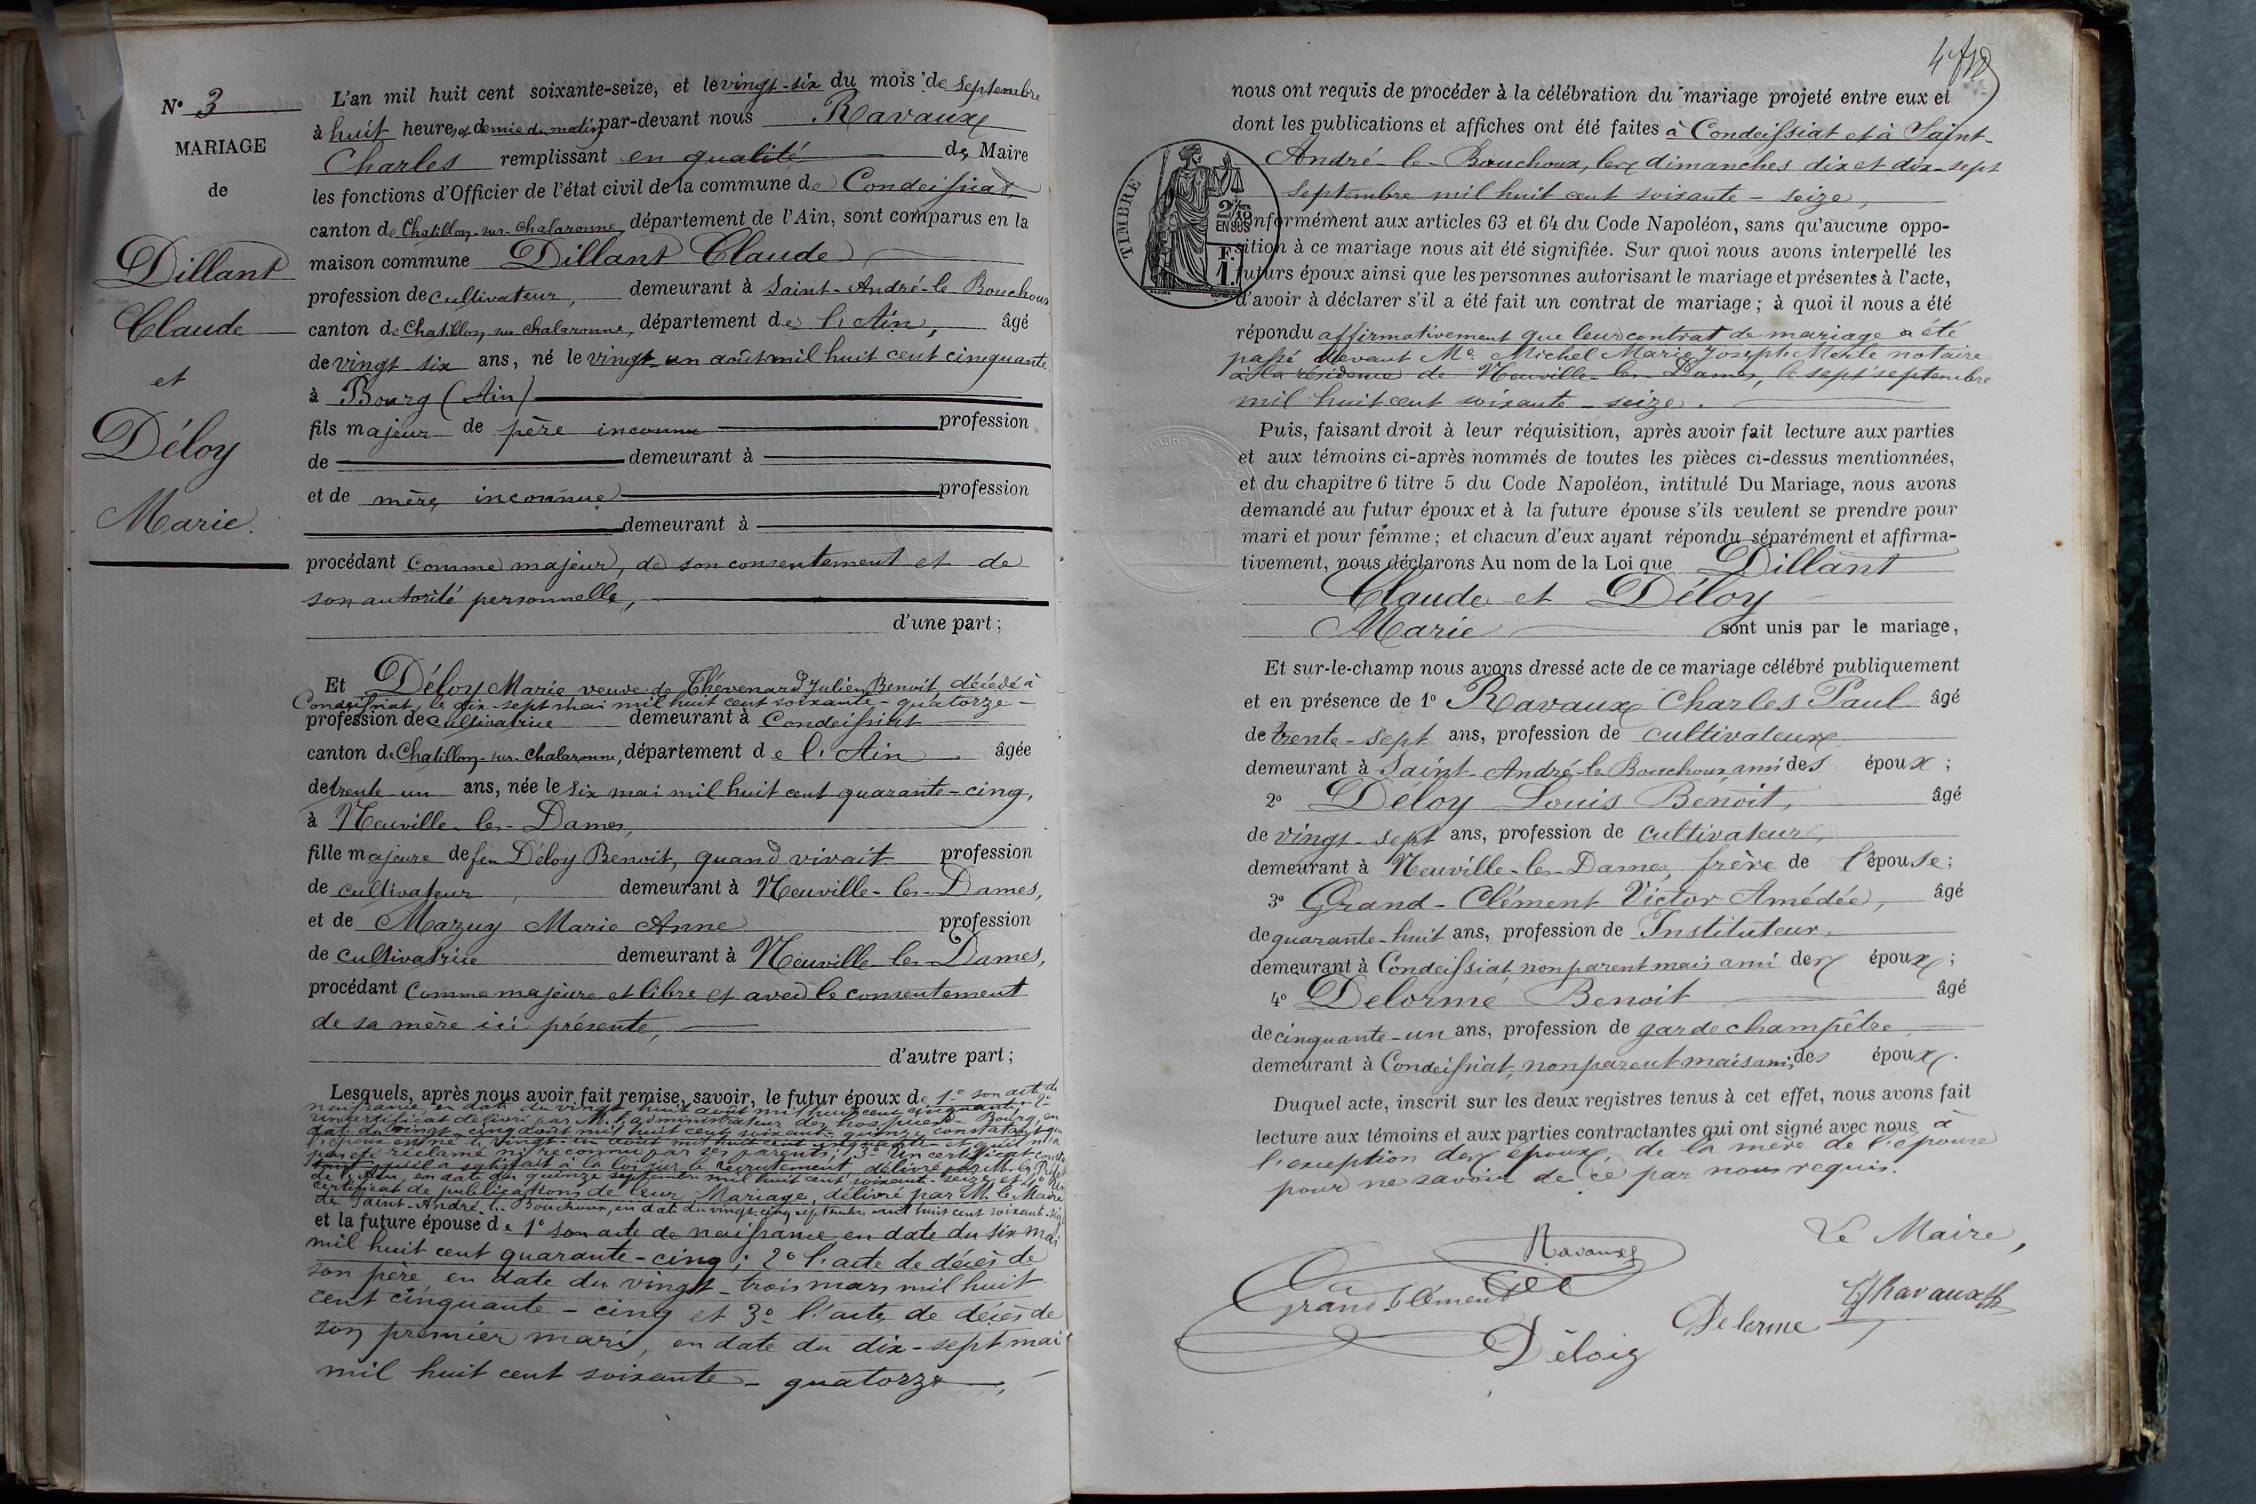 N° 3
MARIAGE
de
Dillant
Claude
et
Déloy
Marie.
L'an mil huit cent soixante-seize, et le vingt-six du mois de septembre
à huit heures et demie du matin par-devant nous Ravaux
Charles remplissant en qualité de Maire
les fonctions d'Officier de l'état civil de la commune de Condeissiat,
canton de Chatillon-sur-Chalaronne, département de l'Ain, sont comparus en la
maison commune Dillant Claude
profession de cultivateur, demeurant à Saint-André-le Bouchoux
canton de Chatillon sur Chalaronne, département de l'Ain, âgé
de vingt six ans, né le vingt-un août mil huit cent cinquante
à Bourg (Ain)
fils majeur de père inconnu profession
de demeurant à
et de mère inconnue profession
demeurant à
procédant comme majeur, de son consentement et de
son autorité personnelle,
d'une part ;
Et Déloy Marie veuve de Thévenard Julien Benoit, décédé à
Condeissiat, le dix-sept mai mil huit cent soixante-quatorze
profession de cultivatrice demeurant à Condeissiat
canton de Chatillon-sur-Chalaronne, département de l'Ain âgée
de trente-un ans, née le six mai mil huit cent quarante-cinq,
à Neuville-les-Dames,
fille majeure de feu Déloy Benoit, quand vivait profession
de cultivateur, demeurant à Neuville-les-Dames,
et de Mazuy Marie Anne profession
de cultivatrice demeurant à Neuville-les-Dames,
procédant comme majeure et libre et avec le consentement
de sa mère ici présente,
d'autre part ;
Lesquels, après nous avoir fait remise, savoir, le futur époux de 1° son acte de
naissance, en date du vingt huit août mil huit cent cinquante, 2°
un certificat délivré par M. l'administrateur des hospices de Bourg, en
date du vingt-cinq août mil huit cent soixante-quinze constatant que
l'époux est né le vingt-un août mil huit cent cinquante et qu'il n'a
pas été réclamé ni reconnu par ses parents ; 3° Un certificat consta
tant qu'il a satisfait à la loi sur le recrutement, délivré par M. le Préfet
de l'Ain, en date du quinze septembre mil huit cent soixante-seize et 4° Un
certificat de publications de leur Mariage, délivré par M. le Maire
de Saint-André-le-Bouchoux, en date du vingt-cinq septembre mil huit cent soixante-seize
et la future épouse de 1° son acte de naissance en date du six mai
mil huit cent quarante-cinq ; 2° l'acte de décès de
son père, en date du vingt-trois mars mil huit
cent cinquante-cinq et 3° l'acte de décès de
son premier mari, en date du dix-sept mai
mil huit cent soixante-quatorze,
nous ont requis de procéder à la célébration du mariage projeté entre eux et
dont les publications et affiches ont été faites à Condeissiat et à Saint-
André-le-Bouchoux, les dimanches dix et dix-sept
septembre mil huit cent soixante-seize,
TIMBRE
2/10
EN SUS
F.
1.
Conformément aux articles 63 et 64 du Code Napoléon, sans qu'aucune oppo-
sition à ce mariage nous ait été signifiée. Sur quoi nous avons interpellé les
futurs époux ainsi que les personnes autorisant le mariage et présentes à l'acte,
d'avoir à déclarer s'il a été fait un contrat de mariage ; à quoi il nous a été
répondu affirmativement que leur contrat de mariage a été
passé devant Me Michel Marie Joseph notaire
à la résidence de Neuville-les-Dames, le sept septembre
mil huit cent soixante-seize.
Puis, faisant droit à leur réquisition, après avoir fait lecture aux parties
et aux témoins ci-après nommés de toutes les pièces ci-dessus mentionnées,
et du chapitre 6 titre 5 du Code Napoléon, intitulé Du Mariage, nous avons
demandé au futur époux et à la future épouse s'ils veulent se prendre pour
mari et pour femme ; et chacun d'eux ayant répondu séparément et affirma-
tivement, nous déclarons Au nom de la Loi que Dillant
Claude et Déloy
Marie sont unis par le mariage,
Et sur-le-champ nous avons dressé acte de ce mariage célébré publiquement
et en présence de 1° Ravaux Charles Paul âgé
de trente-sept ans, profession de cultivateur
demeurant à Saint-André-le Bouchoux, ami des époux ;
2° Déloy Louis Benoit, âgé
de vingt-sept ans, profession de cultivateur,
demeurant à Neuville-les-Dames, frère de l'épouse ;
3° Grand-Clément Victor Amédée, âgé
de quarante-huit ans, profession de Instituteur,
demeurant à Condeissiat, non parent mais ami des époux ;
4° Delorme Benoit âgé
de cinquante-un ans, profession de garde champêtre
demeurant à Condeissiat, non parent mais ami des époux.
Duquel acte, inscrit sur les deux registres tenus à cet effet, nous avons fait
lecture aux témoins et aux parties contractantes qui ont signé avec nous à
l'exception des époux, de la mère de l'épouse
pour ne savoir de ce par nous requis.
Le Maire,
Ravaux
Grand-Clément
Ch Ravaux
Delorme
Déloiy